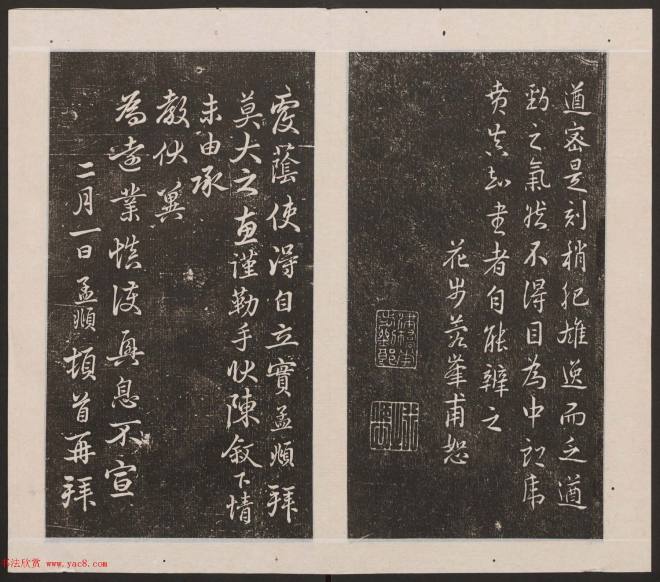 遒密是刻稍犯雄逸而乏遒
勁之氣然不得目為中郎虎
賁真知書者自能辨之
花步蓉峯甫恕
覆蔭使得自立實孟頫拜
莫大之直謹勒手狀陳叙下情
未由承
教伏冀
為遠業慎護興息不宣
二月一日孟頫頓首再拜
书法欣赏 www.yac8.com